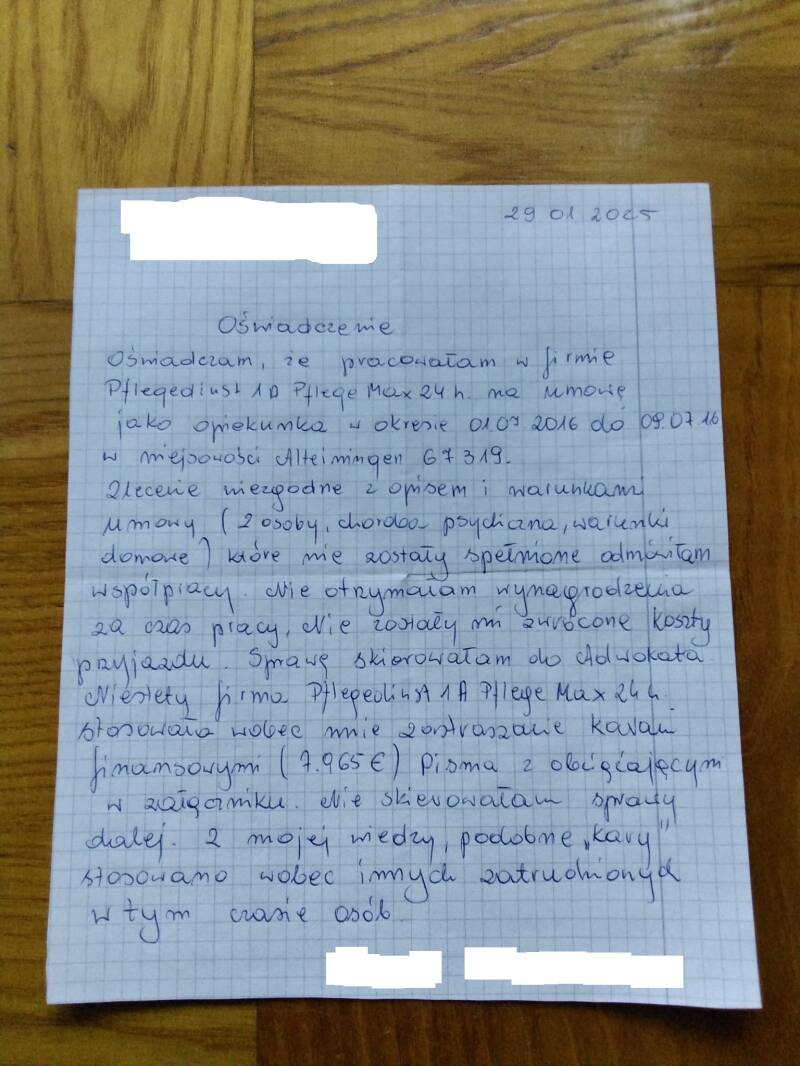 29 01 2025
Oświadczenie
Oświadczam, że pracowałam w firmie
Pflegedinst 1A Pflege Max 24 h. na umowę
jako opiekunka w okresie 01.07 2016 do 09.07.16
w miejscowości Alteiningen 67319.
Zlecenie niezgodne z opisem i warunkami
umowy (2 osoby, choroba psychiczna, warunki
domowe) które nie zostały spełnione odmówiłam
współpracy. Nie otrzymałam wynagrodzenia
za czas pracy, Nie zostały mi zwrócone koszty
przyjazdu. Sprawę skierowałam do Adwokata
Niestety firma Pflegedinst 1A Pflege Max 24 h.
stosowała wobec mnie zastraszanie karami
finansowymi (7.965 €) Pisma z obciążającym
w załączniku. Nie skierowałam sprawy
dalej. Z mojej wiedzy, podobne „kary"
stosowano wobec innych zatrudnionych
w tym czasie osób.